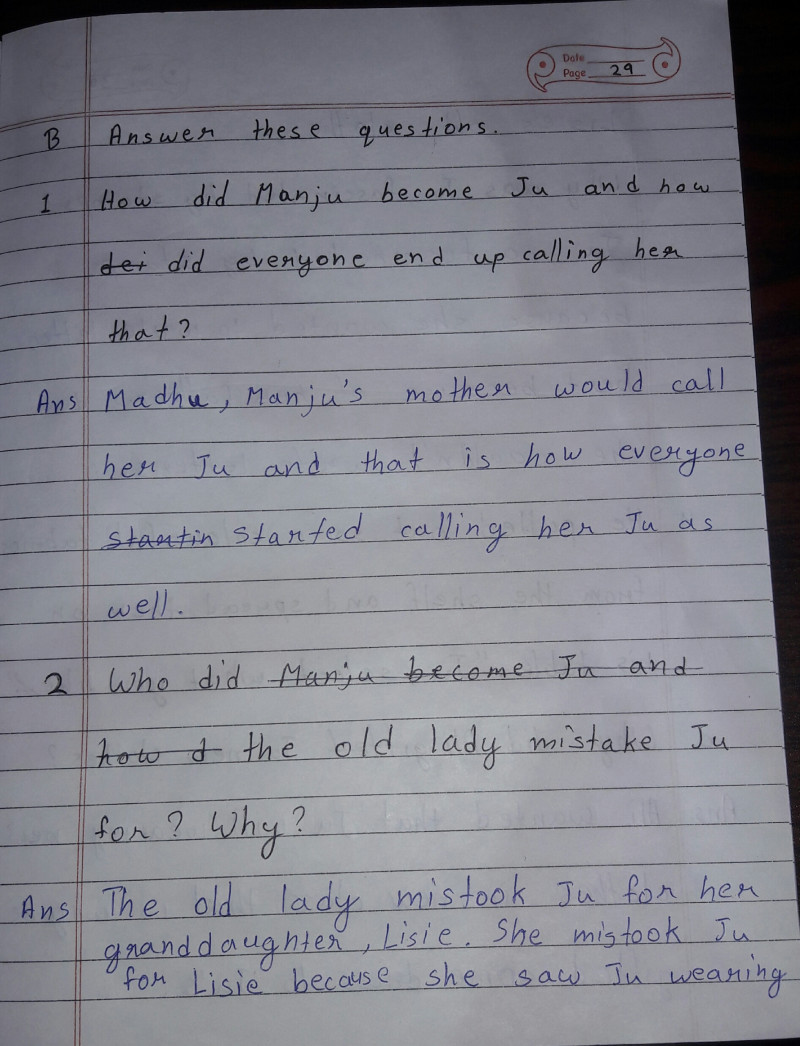 Date
Page 29
B Answer these questions.
1 How did Manju become Ju and how
dei did everyone end up calling her
that?
Ans Madhu, Manju's mother would call
her Ju and that is how everyone
Startin Started calling her Ju as
well.
2 Who did Manju become Ju and
how d the old lady mistake Ju
for? Why?
Ans The old lady mistook Ju for her
granddaughter, Lisie. She mistook Ju
for Lisie because she saw Ju wearing